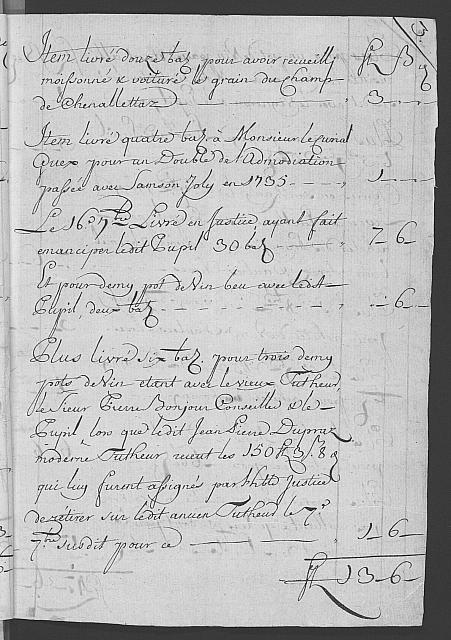 3.
Item livré douze baz pour avoir recueilli fl ß ₰
moissonné & voituré le grain du Champ
de Chenallettaz , 3
Item livré quatre baz. à Monsieur le Curial
Quex pour un Double de l'Admodiation
passée avec Samson Joly en 1735 , 1
Le 16e 7bre Livré en Justice ayant fait
emanciper ledit Pupil 30 baz , 7 6
Et pour demy pot de Vin beu avec ledt
Pupil deux baz , 6
Plus livré six baz. pour trois demy
pots de Vin etant avec le vieux Tutheur,
le Sieur Pierre Bonjour Conseiller & le
Pupil, lors que ledit Jean Pierre Dupraz
moderne Tutheur receut les 150 fl 3 ß 8 ₰
qui luy furent assignés par hble Justice
de rétirer sur ledit ancien Tutheur le 7e
7bre susdit pour ce , 1 6
fl 13 6